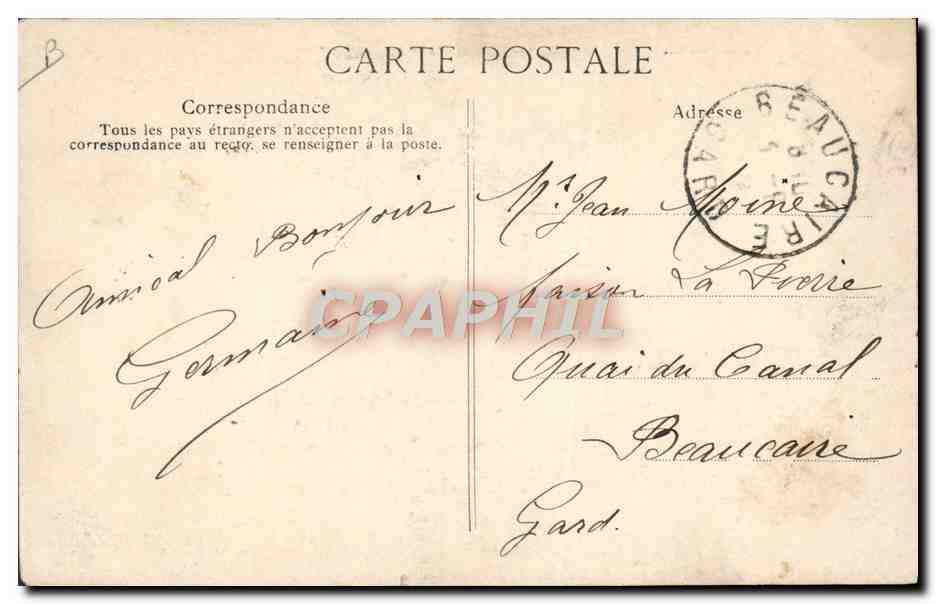 B
CARTE POSTALE
Correspondance
Tous les pays étrangers n'acceptent pas la
correspondance au recto, se renseigner à la poste.
Amical Bonjour
Germaine
Adresse
BEAUCAIRE
GARD
Mr Jean Moine
maison La
Quai du Canal
Beaucaire
Gard.
CPAPHIL